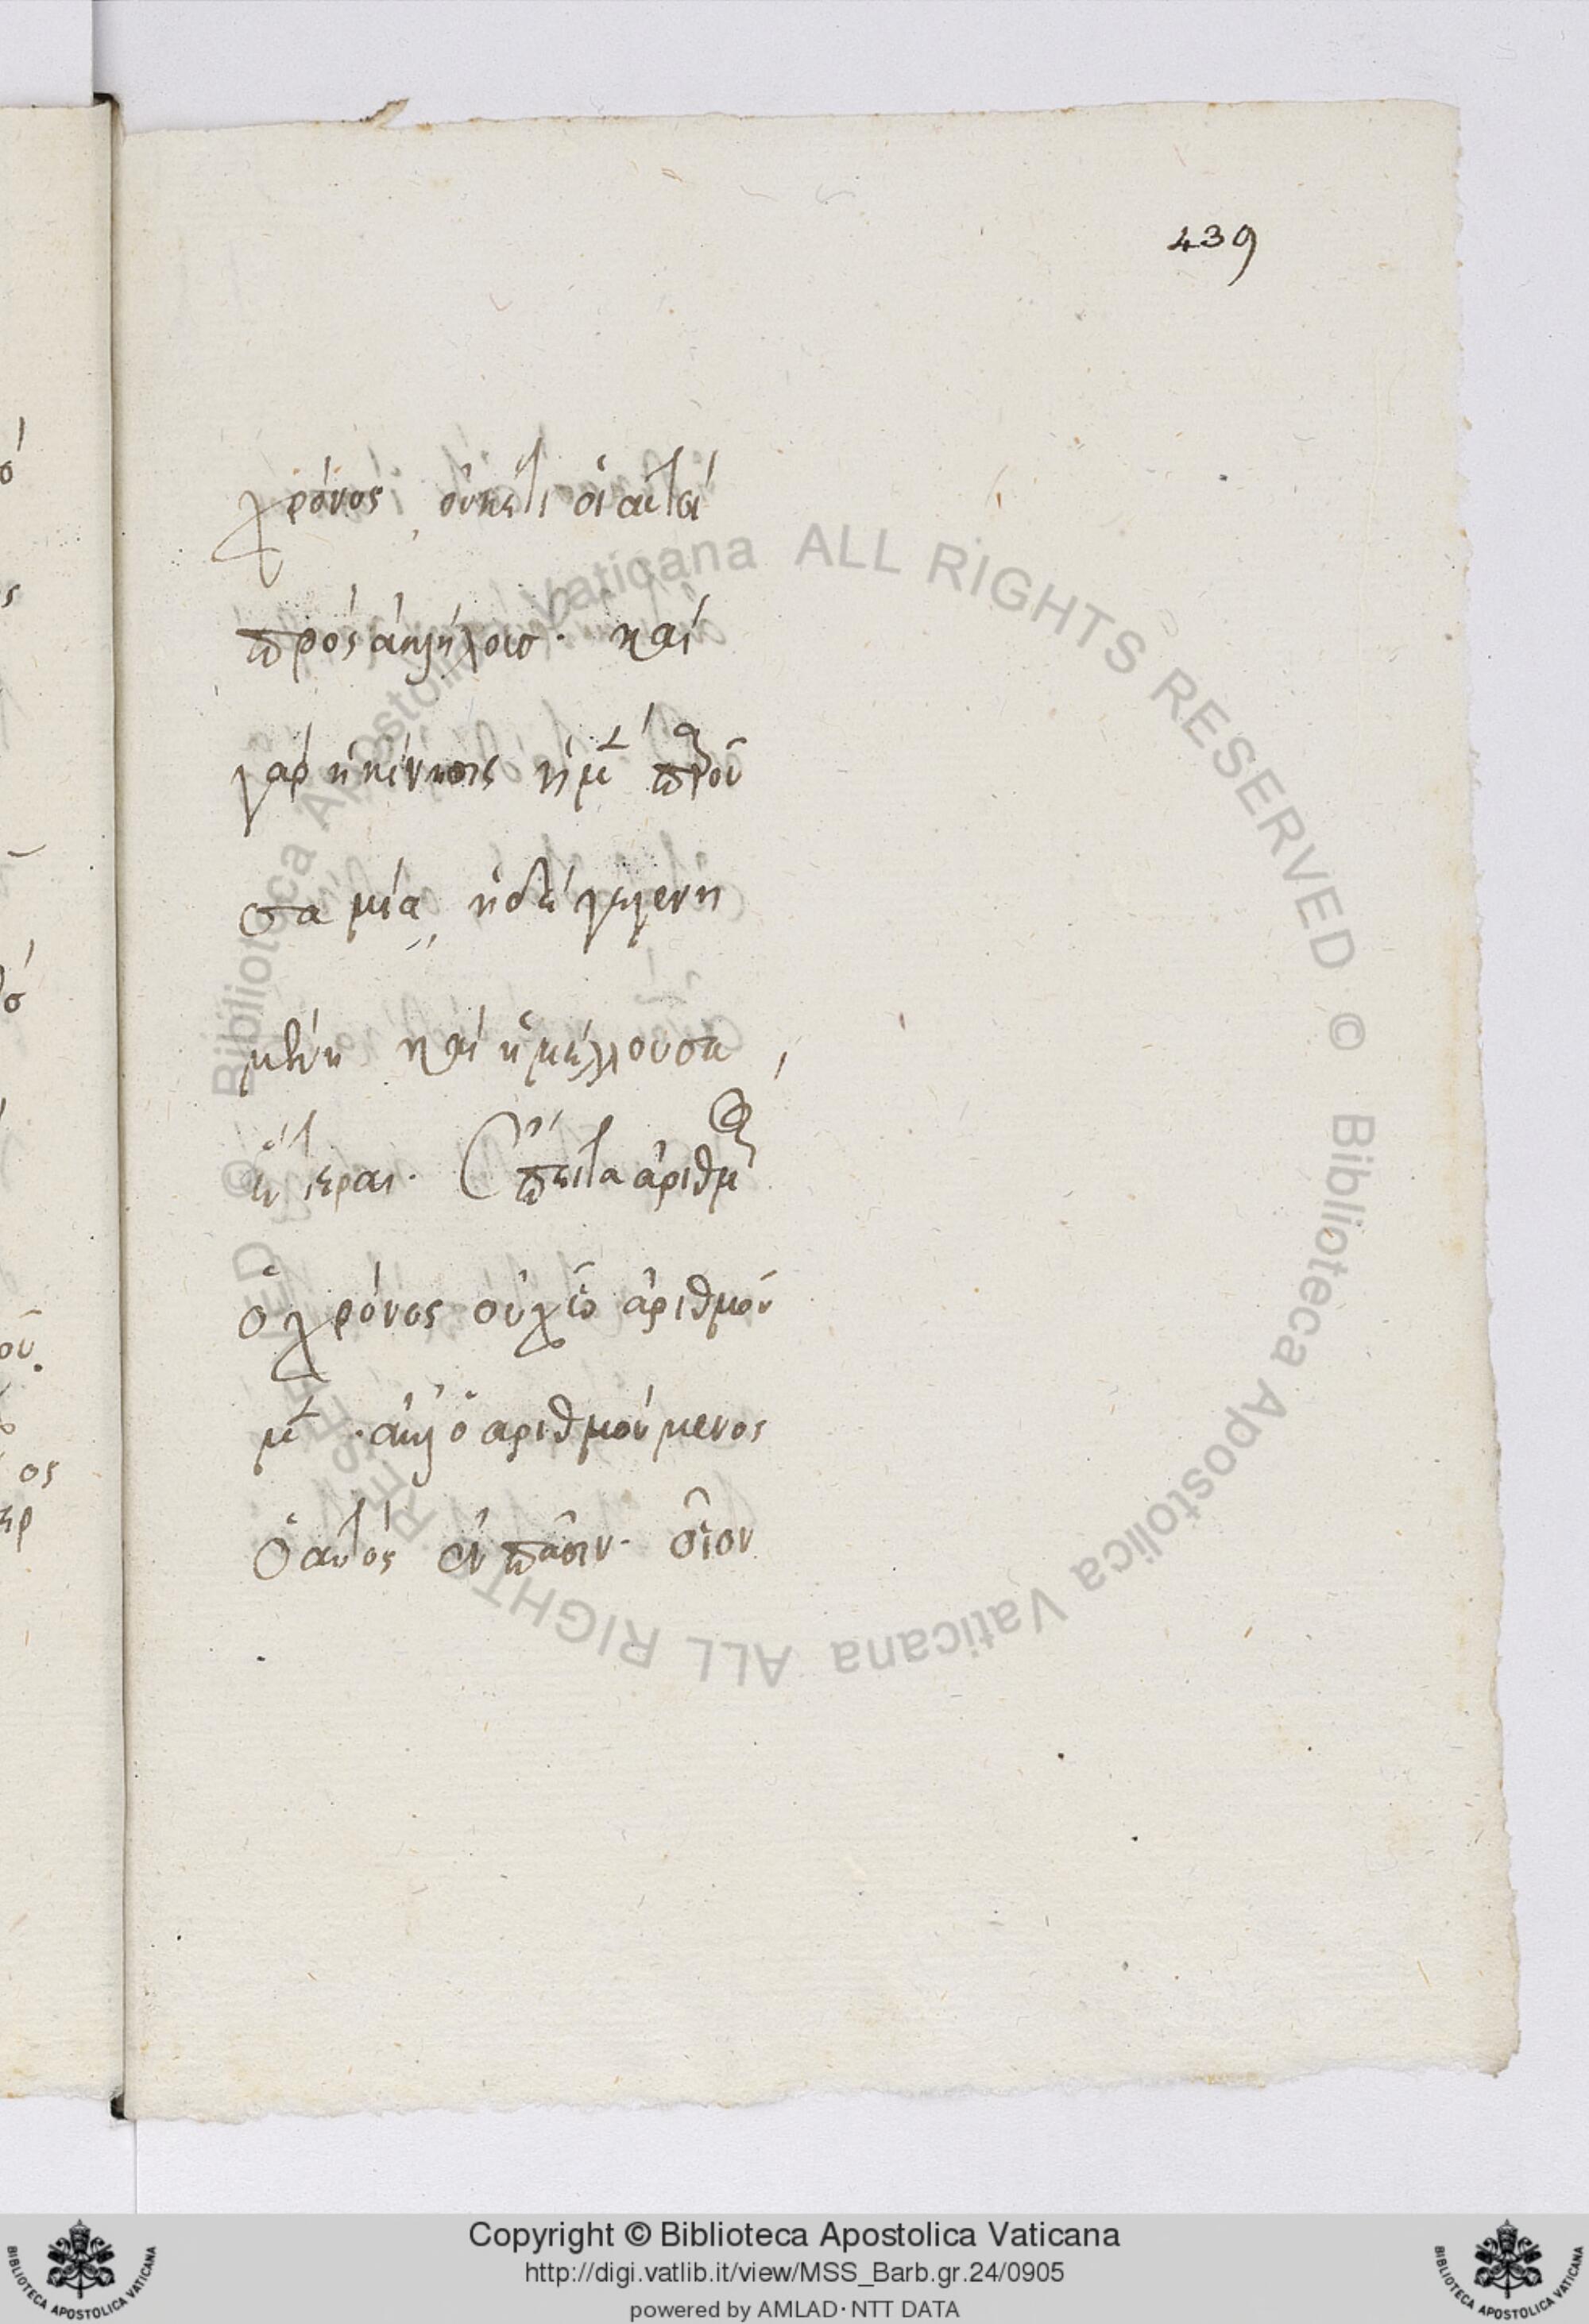 439
χρόνος, οὐκέτι οἱ αὐτοί
πρὸς ἀλλήλους. καὶ
γὰρ ἡ κίνησις ἡ μὲν παροῦ
σα μία, ἡ δὲ γεγενη
μένη καὶ ἡ μέλλουσα,
ἕτεραι. ἔπειτα ἀριθμὸς
ὁ χρόνος οὐχ ᾧ ἀριθμοῦ
μεν. ἀλλ' ὁ ἀριθμούμενος
ὁ αὐτὸς ἐν πᾶσιν. οἷον
Copyright © Biblioteca Apostolica Vaticana
http://digi.vatlib.it/view/MSS_Barb.gr.24/0905
powered by AMLAD·NTT DATA
BIBLIOTECA APOSTOLICA VATICANA
BIBLIOTECA APOSTOLICA VATICANA
© Biblioteca Apostolica Vaticana ALL RIGHTS RESERVED © Biblioteca Apostolica Vaticana ALL RIGHTS RESERVED